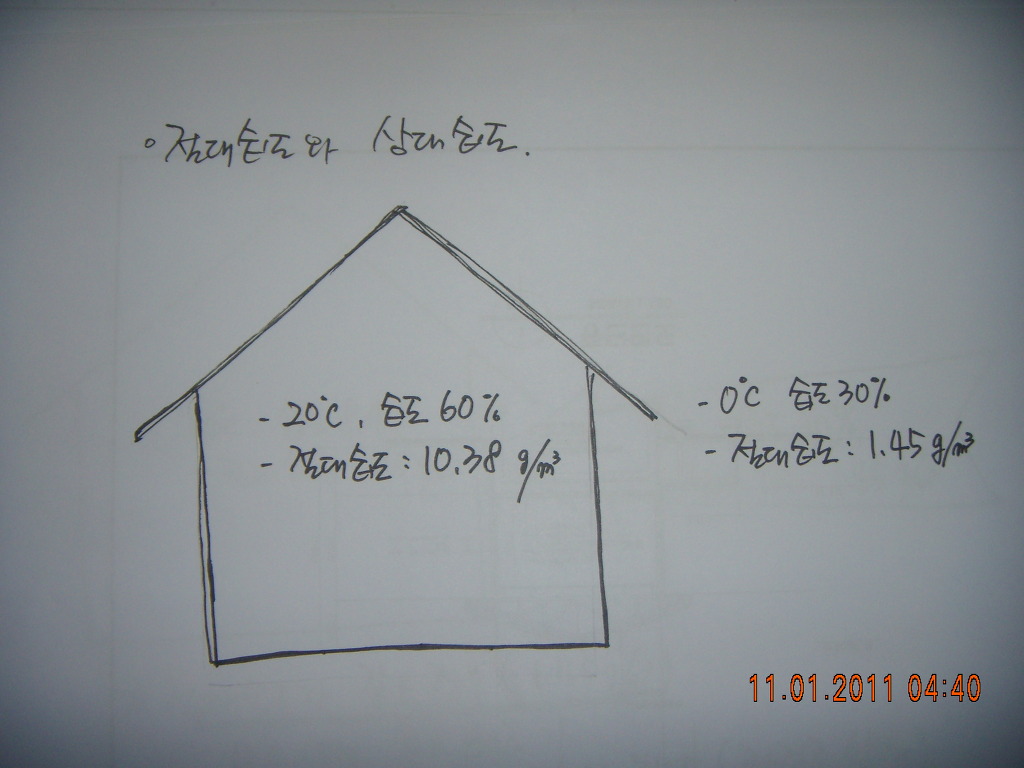 ◦ 절대습도와 상대습도.
- 20℃, 습도 60%
- 절대습도 : 10.38 g/m³
- 0℃ 습도 30%
- 절대습도 : 1.45 g/m³
11.01.2011 04:40